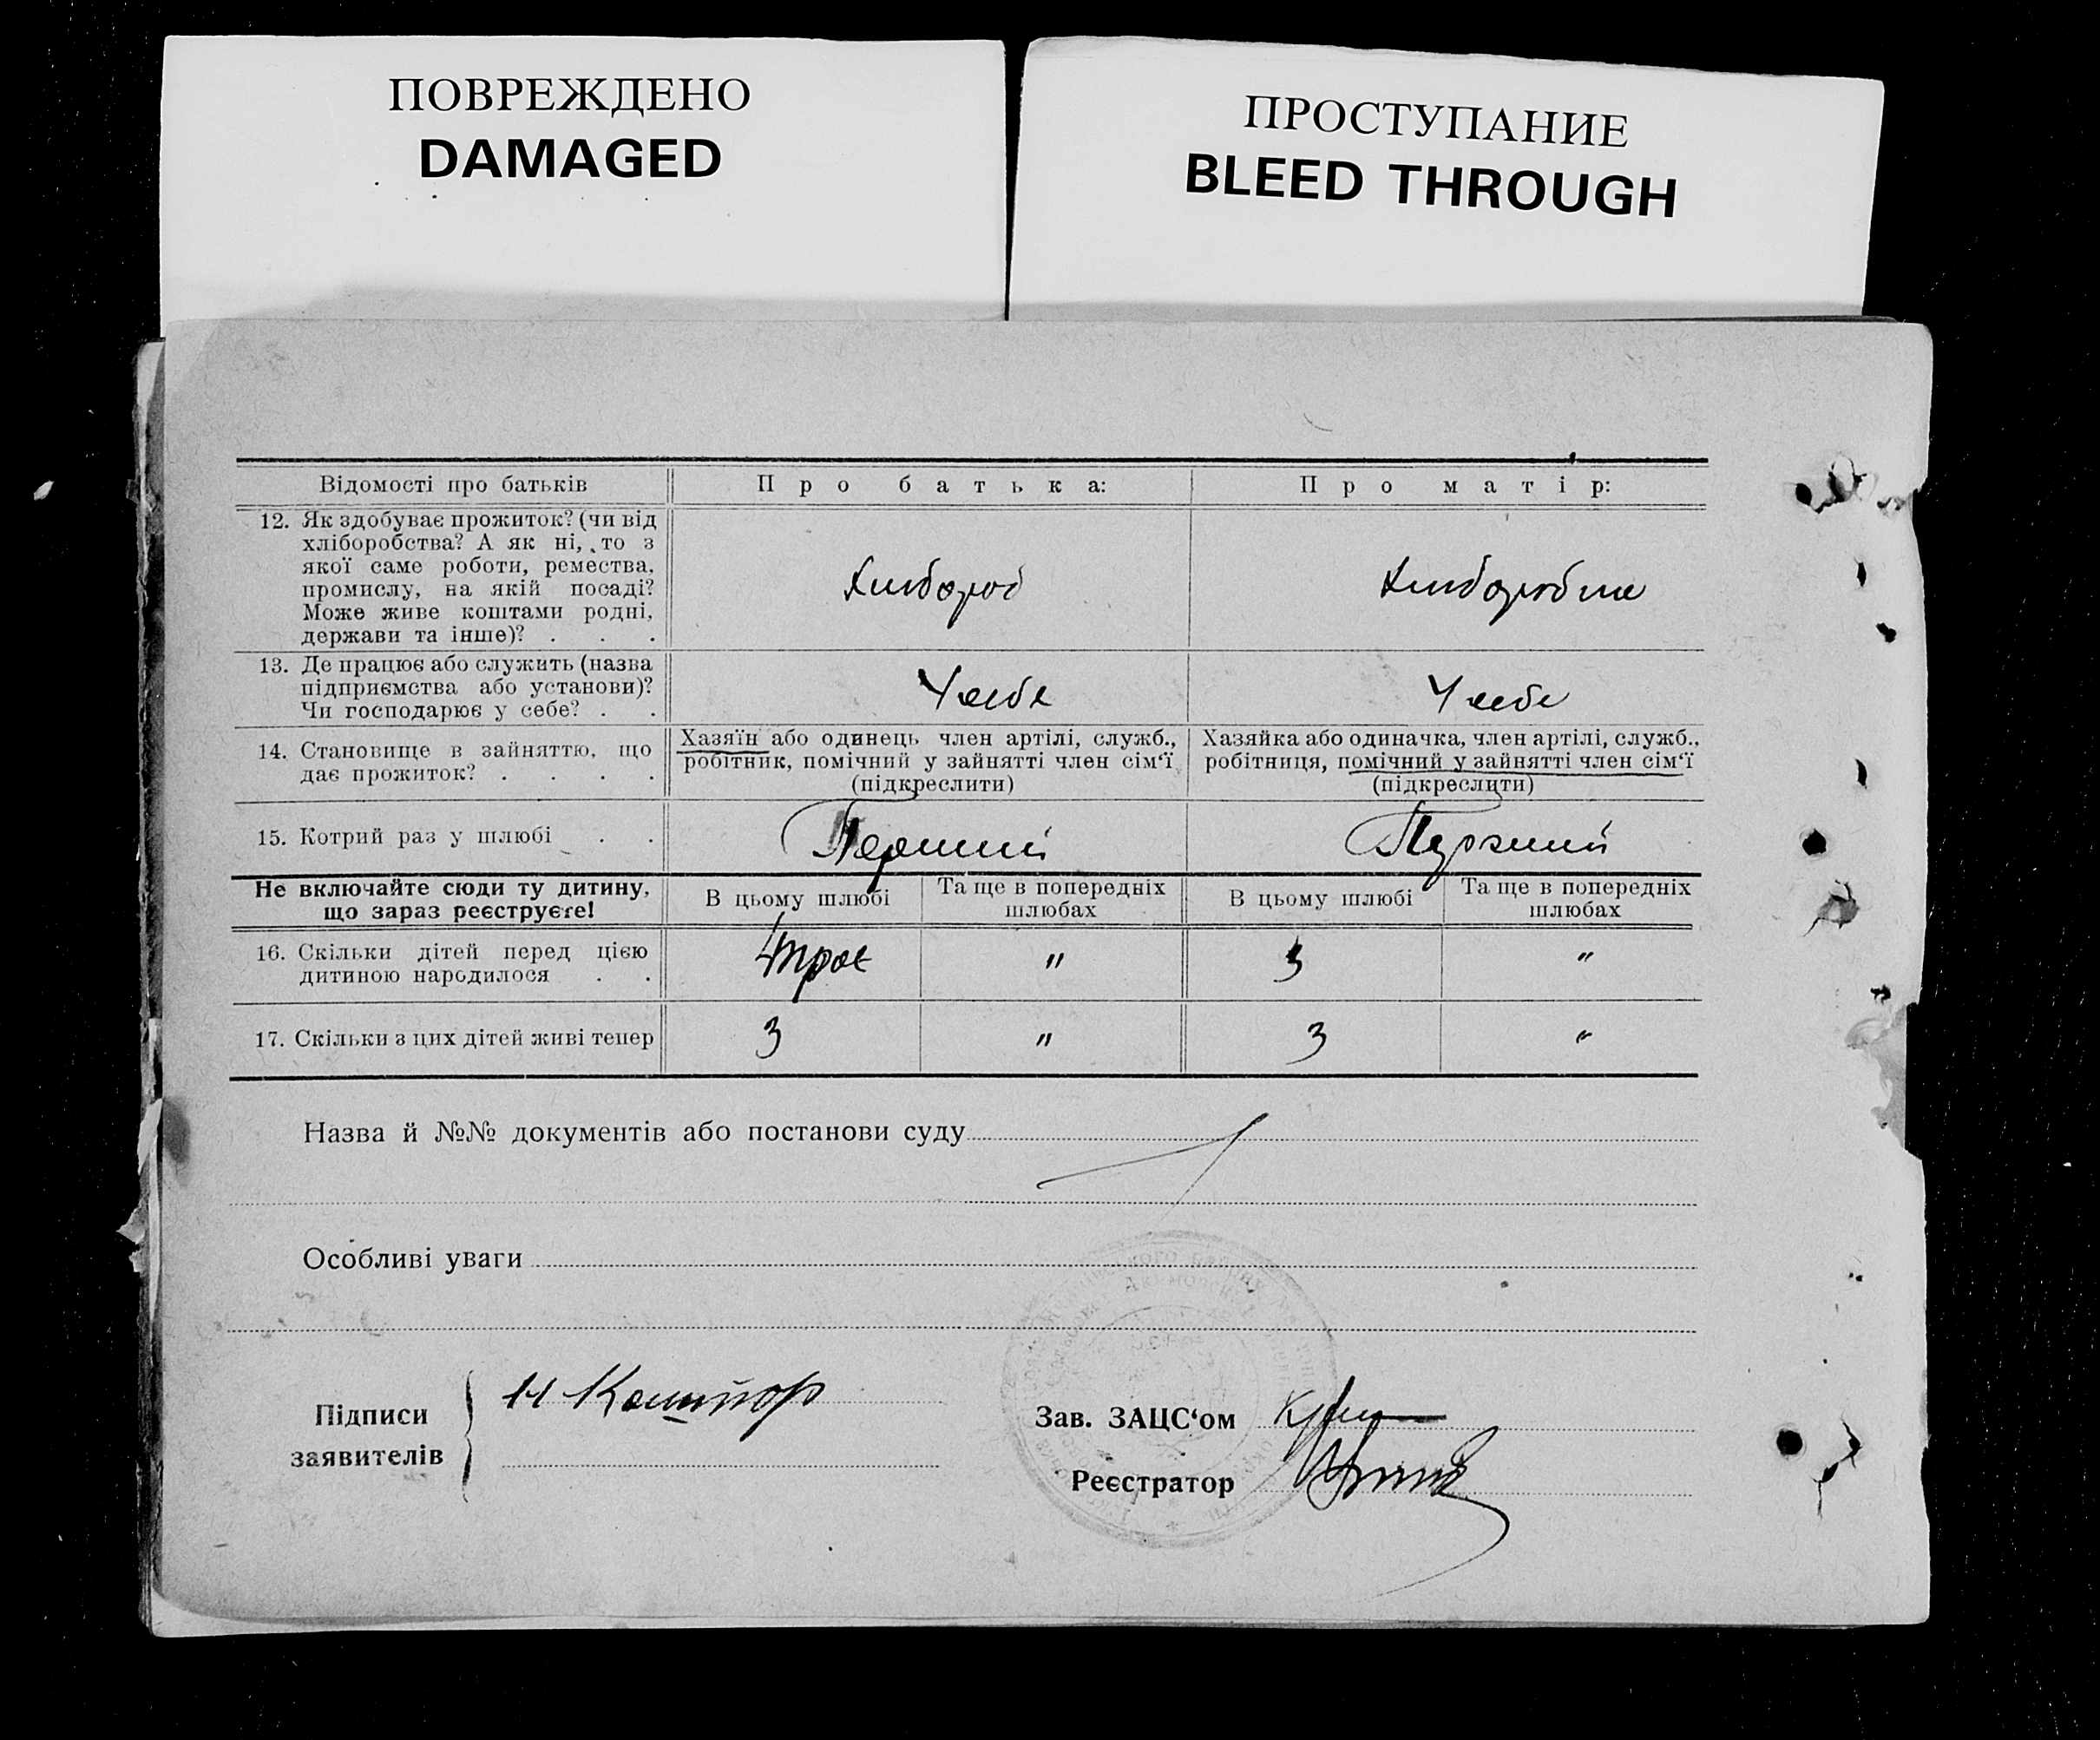 ПОВРЕЖДЕНО
DAMAGED
ПРОСТУПАНИЕ
BLEED THROUGH
Відомості про батьків
Про батька:
Про матір:
12. Як здобуває прожиток? (чи від
хліборобства? А як ні, то з
якої саме роботи, ремества,
промислу, на якій посаді?
Може живе коштами родні,
держави та інше)? . . .
Хлібороб
13. Де працює або служить (назва
підприємства або установи)?
Чи господарює у себе? . .
У себе
У себе
14. Становище в зайняттю, що
дає прожиток? . . . .
Хазяїн або одинець член артілі, служб.,
робітник, помічний у зайнятті член сім‘ї
(підкреслити)
Хазяйка або одиначка, член артілі, служб.,
робітниця, помічний у зайнятті член сім‘ї
(підкреслити)
15. Котрий раз у шлюбі . .
Перший
Перший
Не включайте сюди ту дитину,
що зараз реєструєте!
В цьому шлюбі
Та ще в попередніх
шлюбах
В цьому шлюбі
Та ще в попередніх
шлюбах
16. Скільки дітей перед цією
дитиною народилося . .
троє
"
3
"
17. Скільки з цих дітей живі тепер
3
"
3
"
Назва й №№ документів або постанови суду
Особливі уваги
Підписи
заявителів
Зав. ЗАЦС‘ом
Реєстратор